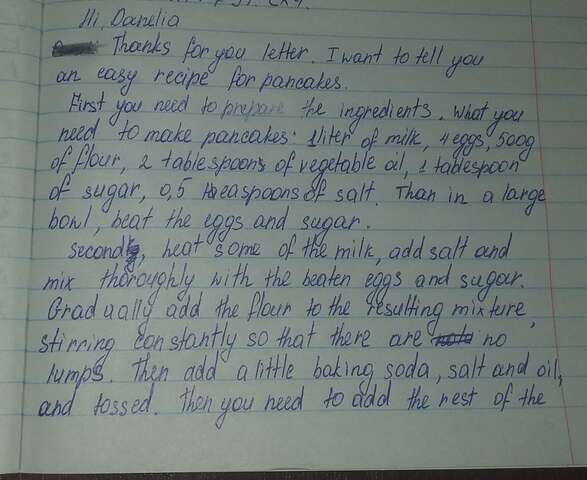 Hi, Danelia
Thanks for you letter. I want to tell you
an easy recipe for pancakes.
First you need to prepare the ingredients. What you
need to make pancakes: 1 liter of milk, 4 eggs, 500g
of flour, 2 tablespoons of vegetable oil, 1 tablespoon
of sugar, 0,5 teaspoons of salt. Than in a large
bowl, beat the eggs and sugar.
Second, heat some of the milk, add salt and
mix thoroughly with the beaten eggs and sugar.
Gradually add the flour to the resulting mixture,
stirring constantly so that there are no
lumps. Then add a little baking soda, salt and oil,
and tossed. Then you need to add the rest of the